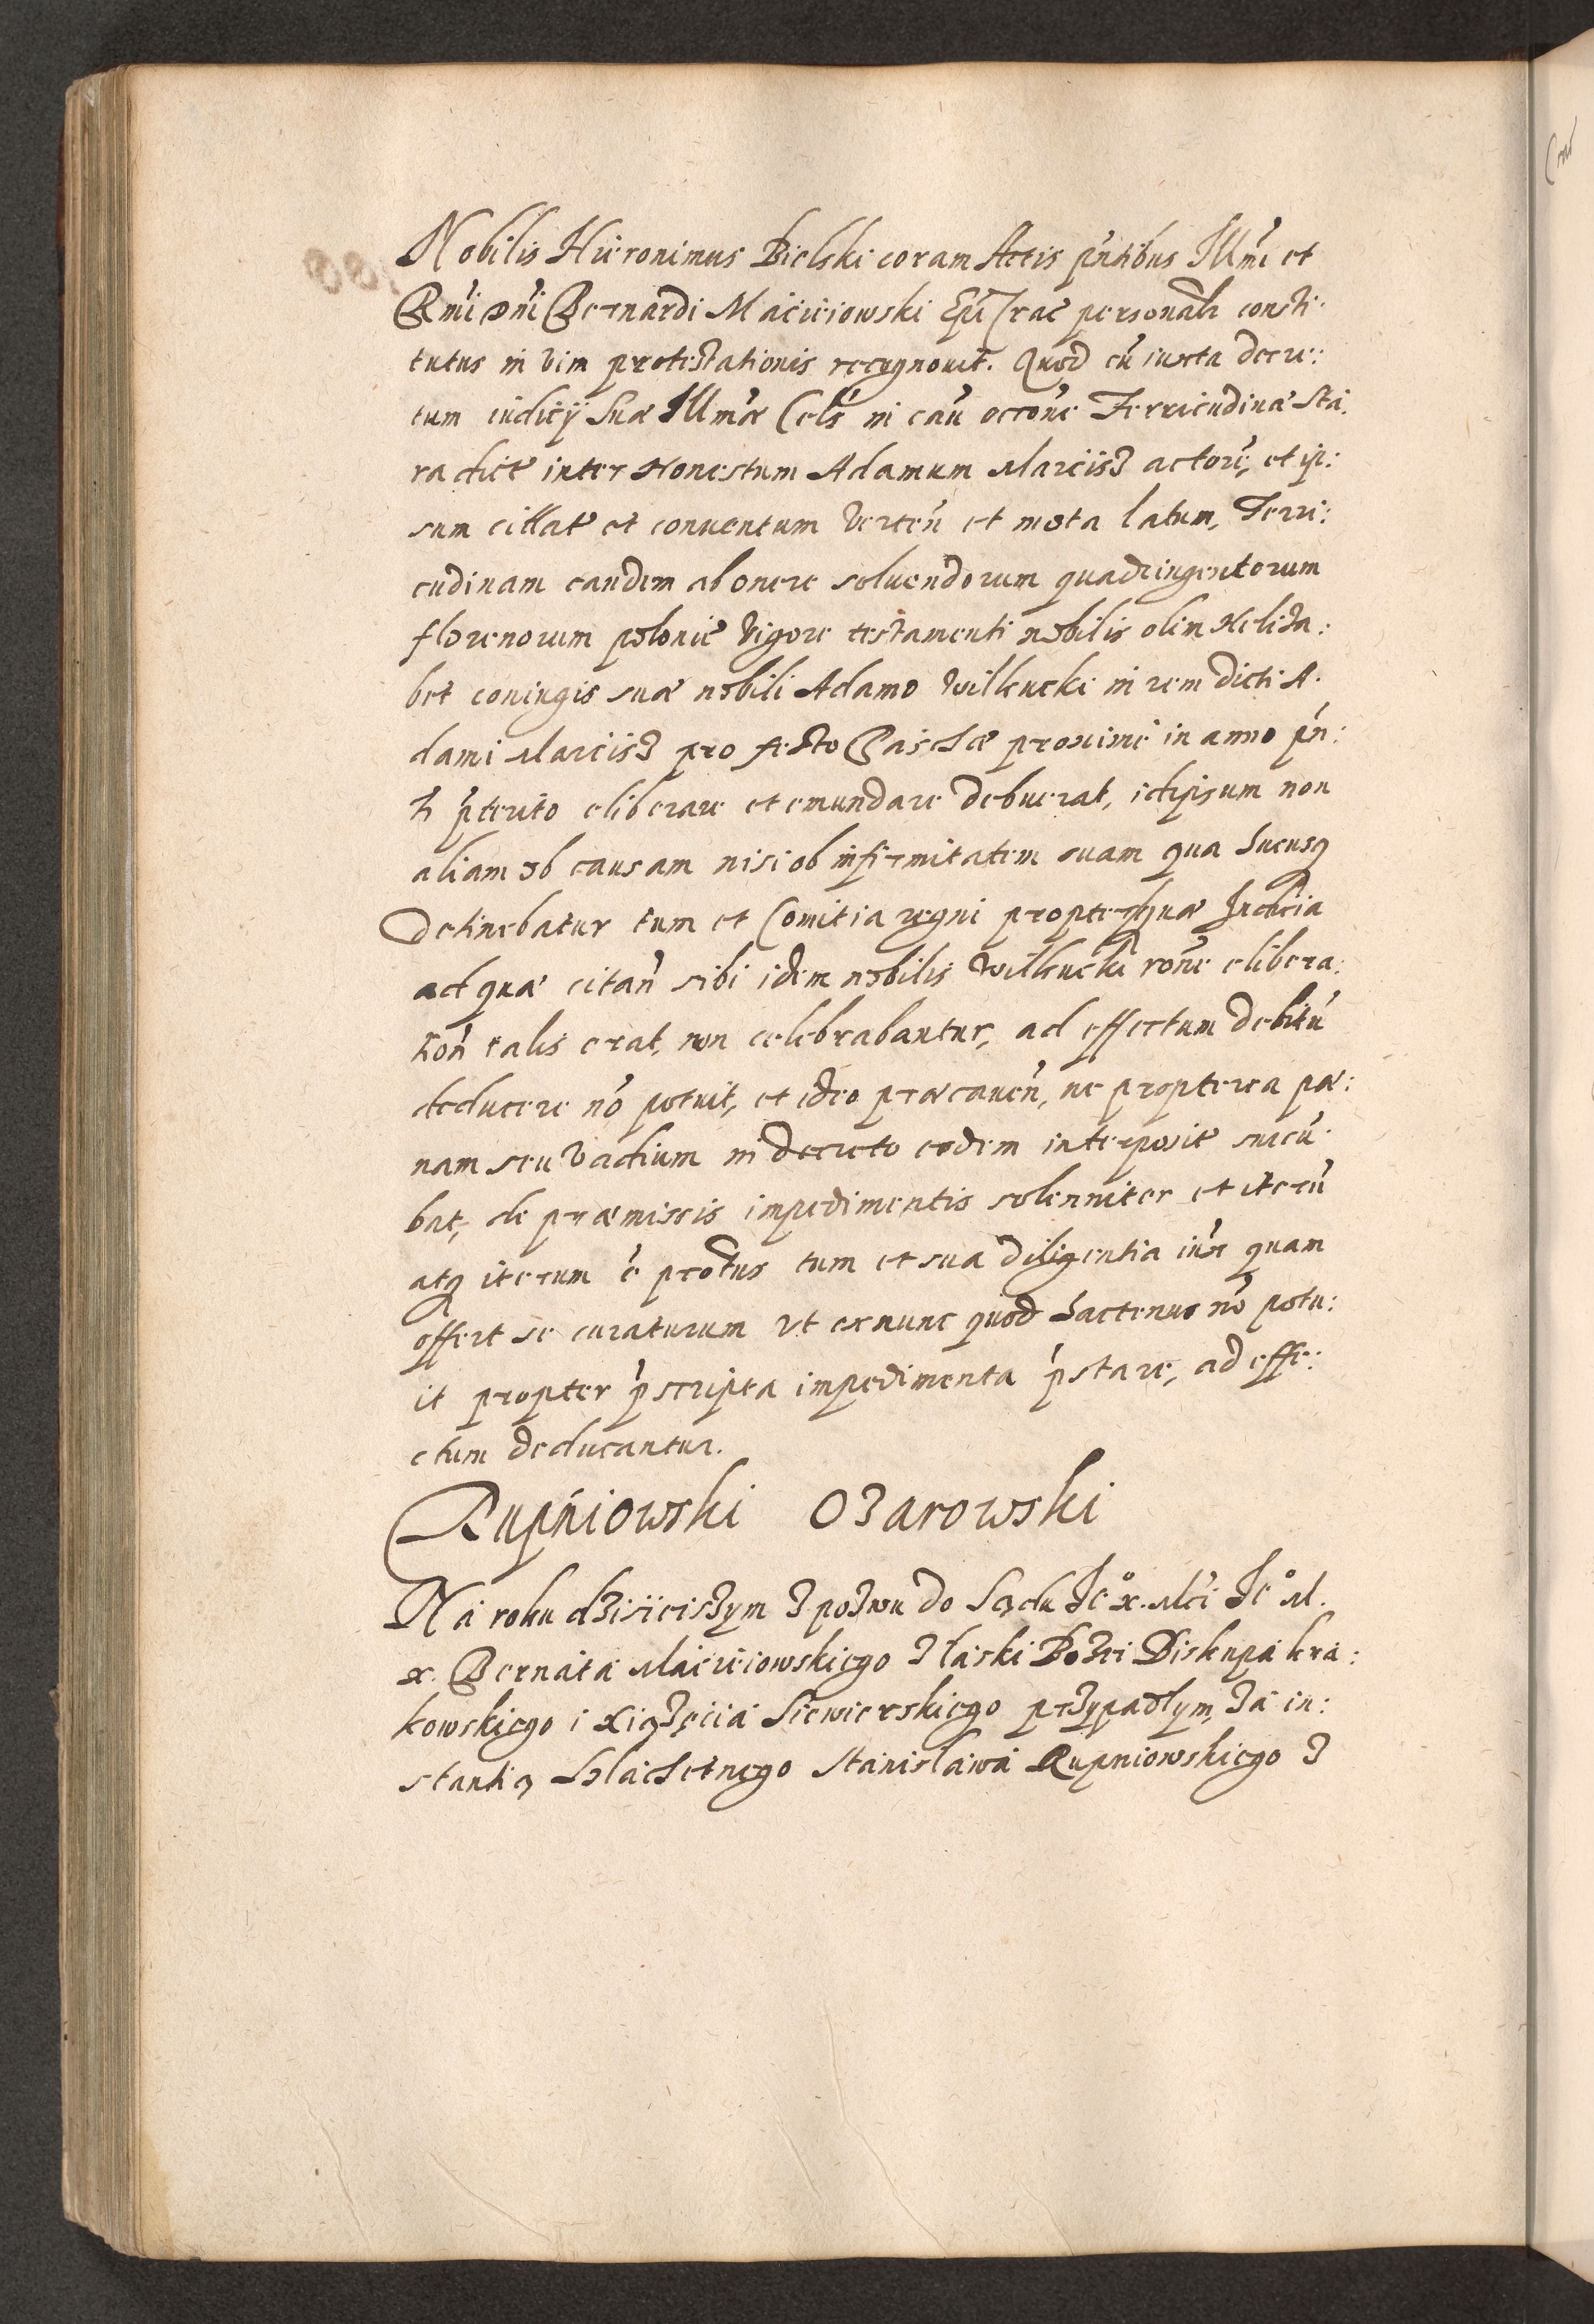 Nobilis Hieronimus Bielski coram Actis pńtibus Illmi et
Rmi Dni Bernardi Maciejowski Epi Crac personalr consti:
tutus in vim protestationis recognovit. Quod cu iuxta decre:
tum iudicij Suæ Illmæ Cels in cau occone Ferricudinæ Sta.
ra dictæ inter Honestum Adamum Marcisz actore, et ip:
sum cittat et conventum verten et mota latum, Ferri:
cudinam eandem ab onere solvendorum quadringentorum
florenorum polonic vigore testamenti nobilis olim Helisa:
bet coniugis suæ nobili Adamo Wilkucki in rem dicti A.
dami Marcisz pro festo Paschæ proxime in anno pn:
ti pterito eliberare et emundare debuerat, id ipsum non
aliam ob causam nisi ob infirmitatem suam qua hucusq
detinebatur tum et Comitia regni propter quæ Iudicia
ad quæ citan sibi idem nobilis Wilkucki rone elibera:
tion talis erat, non celebrabantur, ad effectum debitu
deducere no potuit, et ideo præcaven, ne propterea pæ:
nam seu vadium in decreto eodem interposit succu:
bat, de præmissis impedimentis solenniter et iteru
atq iterum e protus tum et sua diligentia iux quam
offert se curaturum ut ex nunc quod hactenus no potu:
it propter pscripta impedimenta pstare, ad effe:
ctum deducantur.
Rupniowski Ozarowski
Na roku dzisieiszym z pozwu do Sądu Je° x. Mci Je° M.
x. Bernata Macieiowskiego z łaski Bożei Biskupa kra:
kowskiego i Xiążęcia Siewierskiego przypadłym, za in:
stantią Szlachetnego Stanisława Rupniowskiego z